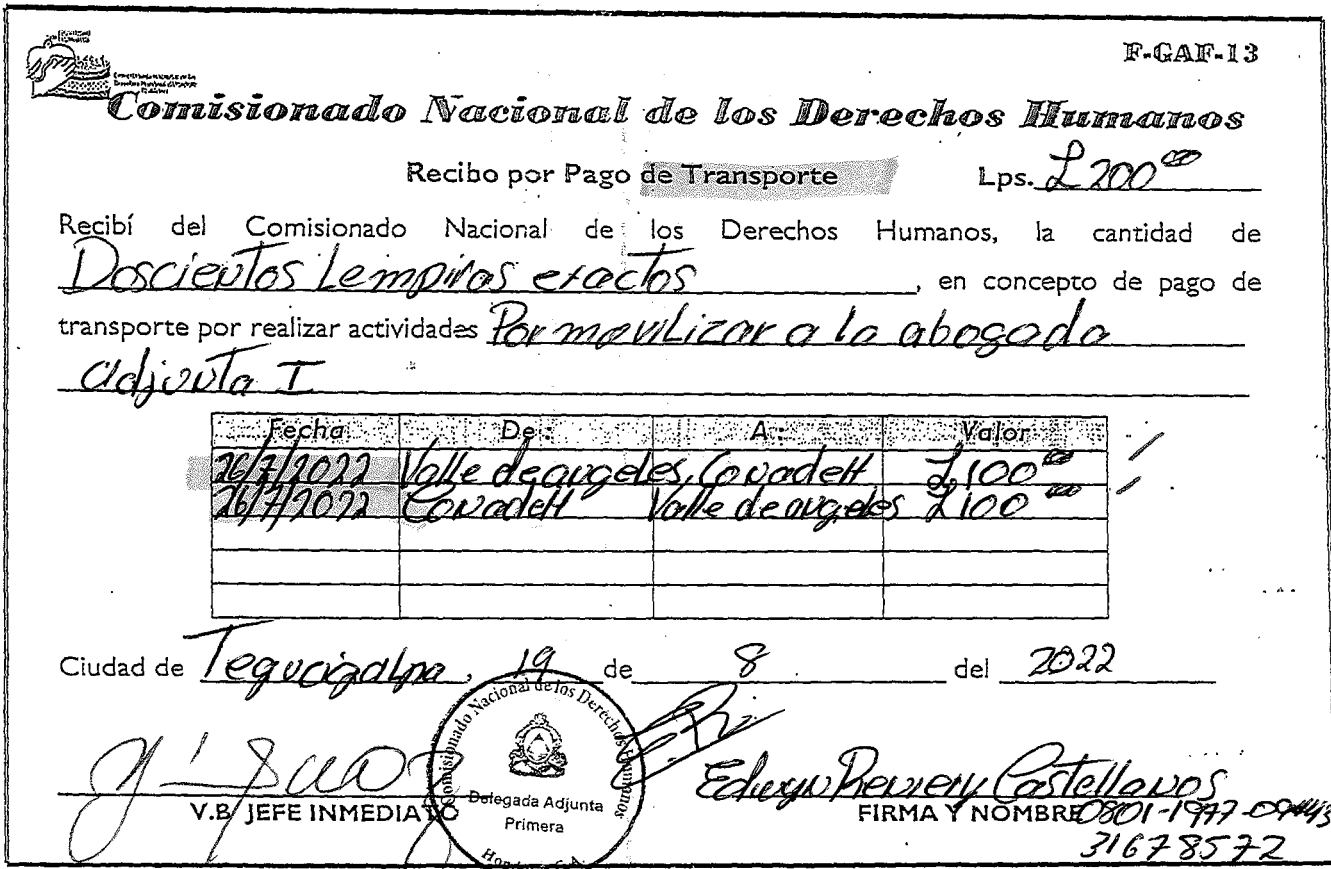 F-GAF-13
Comisionado Nacional de los Derechos Humanos
Recibo por Pago de Transporte Lps. L 200.00
Recibí del Comisionado Nacional de los Derechos Humanos, la cantidad de
Doscientos Lempiras exactos, en concepto de pago de
transporte por realizar actividades Por movilizar a la abogada
adjunta I
Fecha De: A: Valor
26/7/2022 Valle de angeles, Conadeh L 100.00
26/7/2022 Conadeh Valle de angeles L 100.00
Ciudad de Tegucigalpa, 19 de 8 del 2022
Comisionado Nacional de los Derechos Humanos
Delegada Adjunta
Primera
V.B. JEFE INMEDIATO
Castellanos
FIRMA Y NOMBRE 0801-1977
31678572